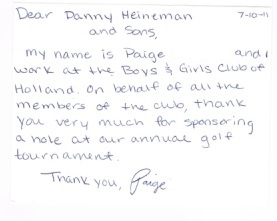 Dear Danny Heineman 7-10-11
and Sons,
my name is Paige and I
work at the Boys & Girls Club of
Holland. On behalf of all the
members of the club, thank
you very much for sponsering
a hole at our annual golf
tournament.
Thank you, Paige